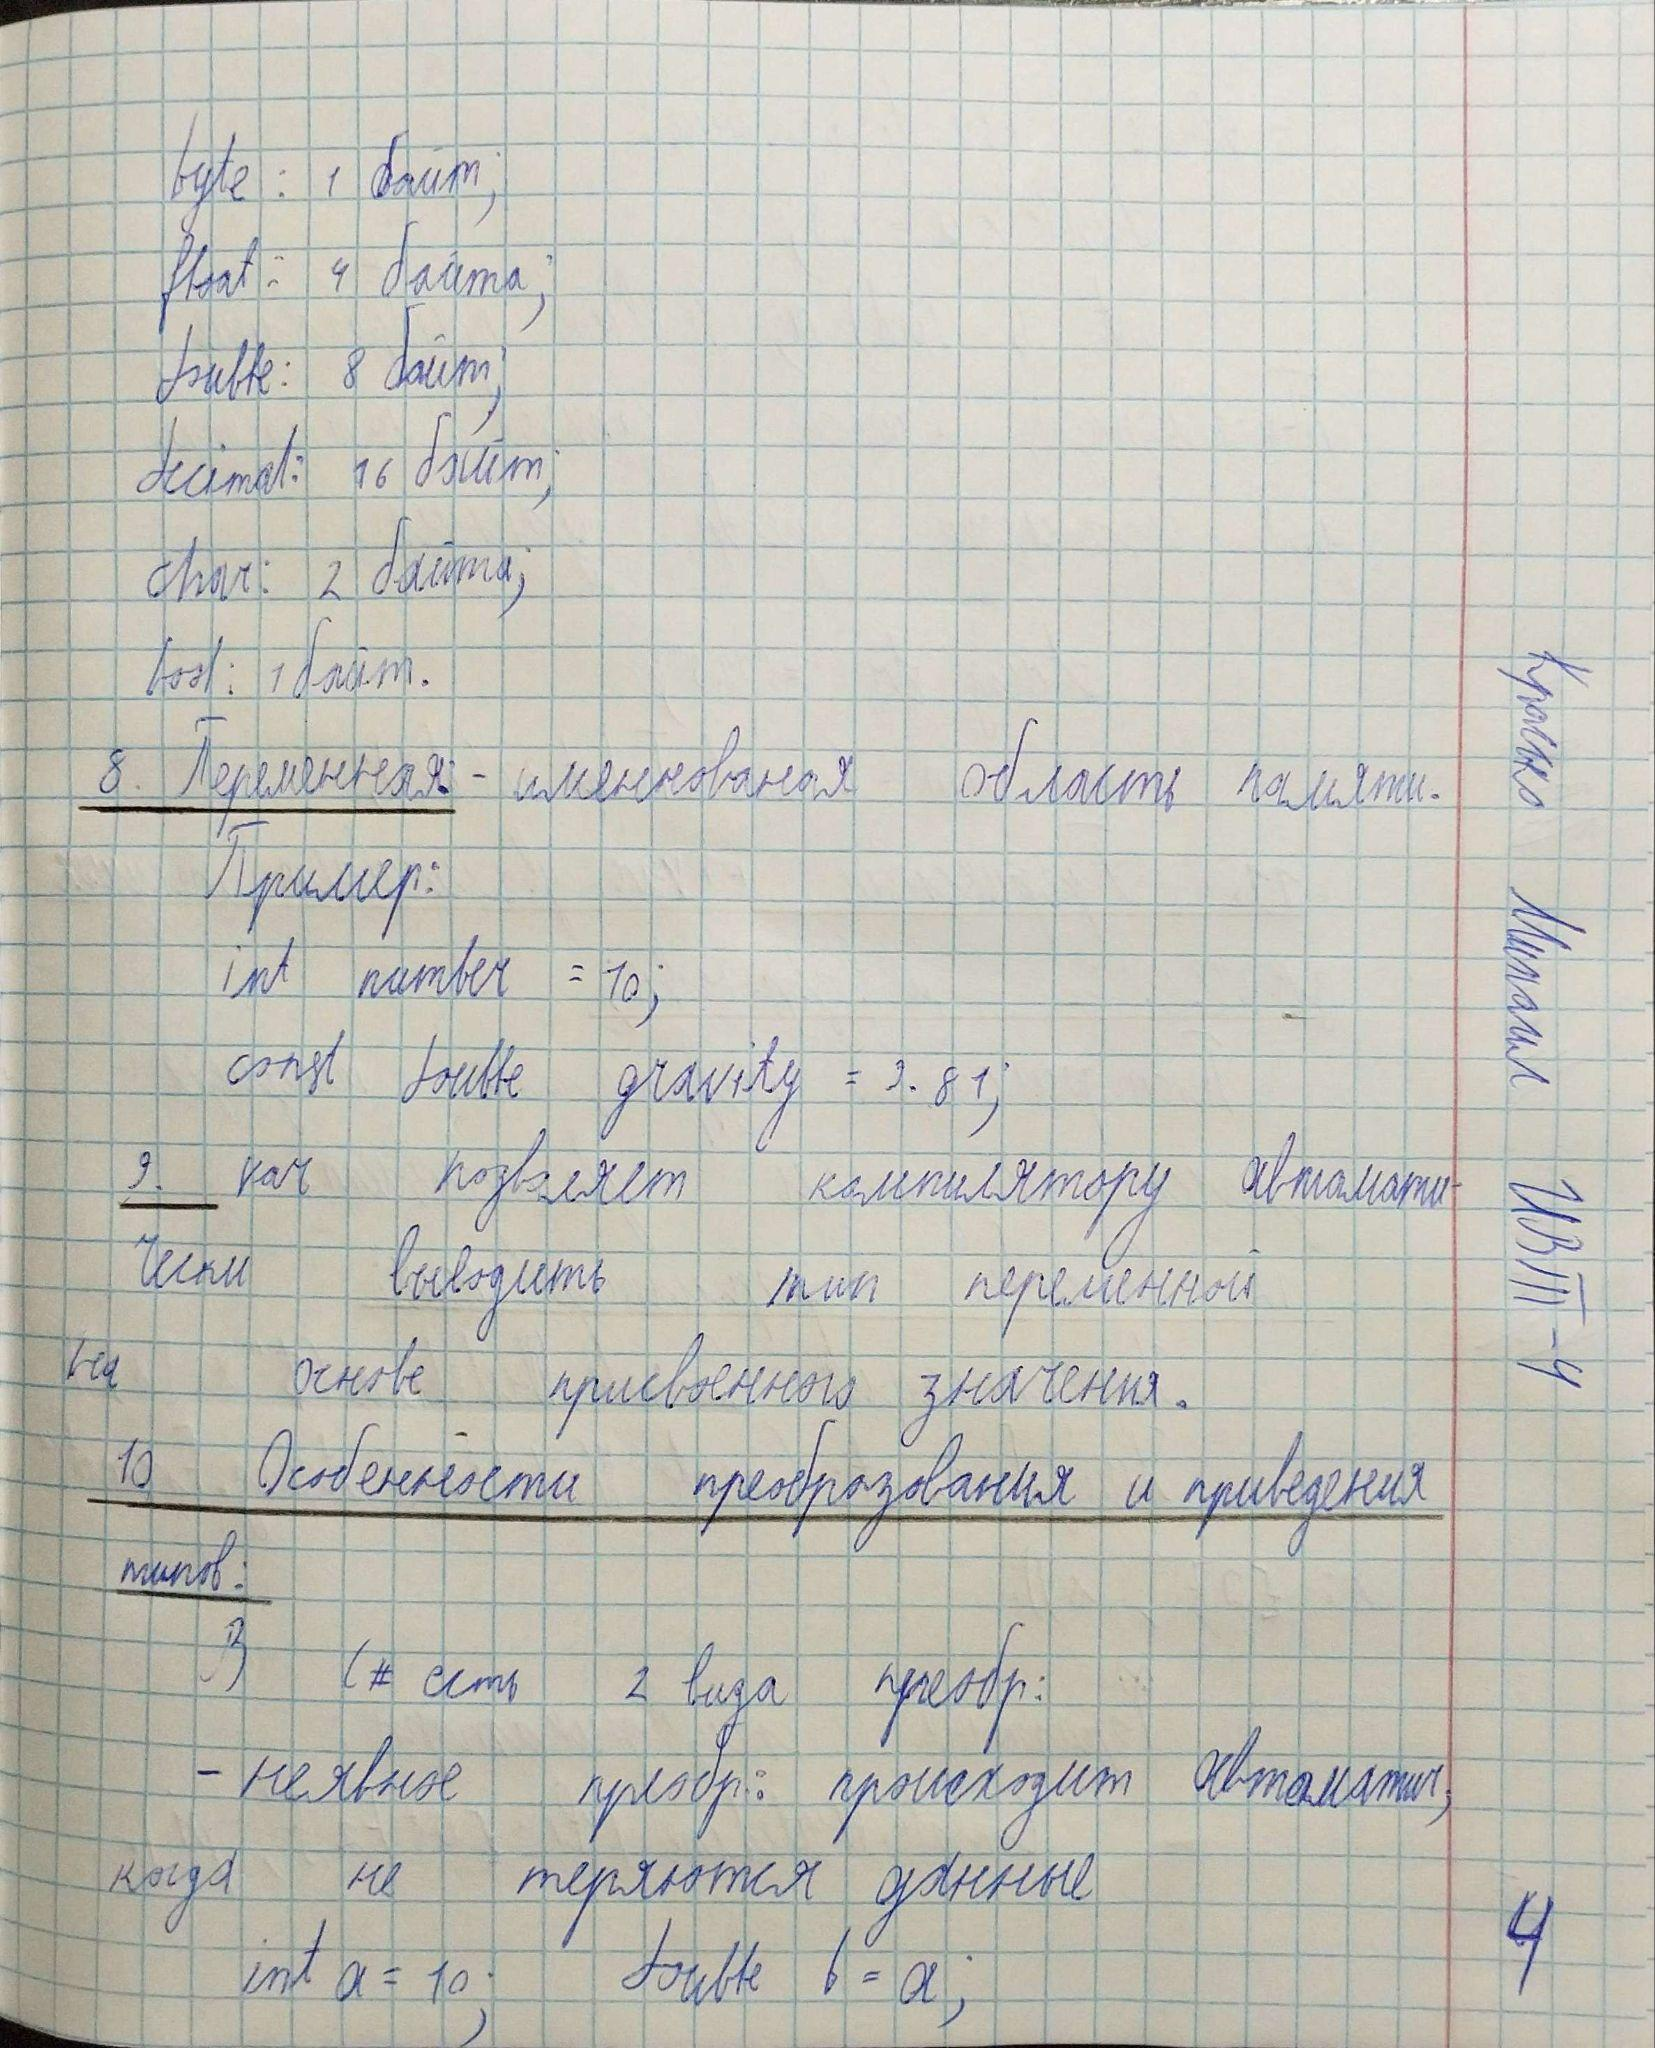 byte: 1 байт;
float: 4 байта;
double: 8 байт;
decimal: 16 байт;
char: 2 байта;
bool: 1 байт.
8. Переменная: - именнованая область памяти.
Пример:
int number = 10;
const double gravity = 9.81;
9. var позволяет компилятору автомати-
чески выводить тип переменной
на основе присвоенного значения.
10 Особенности преобразования и приведения
типов:
В C# есть 2 вида преобр:
- неявное преобр: происходит автоматич,
когда не теряются данные
int a = 10; double b = a;
Красько Михаил ИВТ-4
4